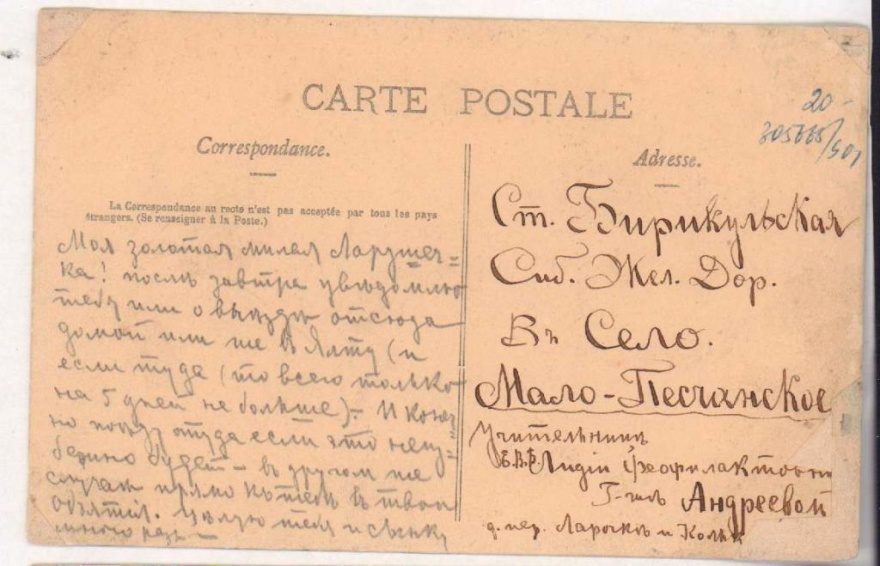 CARTE POSTALE
20-
305665/501
Correspondance.
Adresse.
La Correspondance au recto n'est pas acceptée par tous les pays
étrangers. (Se renseigner à la Poste.)
Моя золотая милая Ларушеч=
ка! послѣ завтра увѣдомлю
тебя или о выѣздѣ отсюда
домой или же въ Ялту (и
если туда (то всего только
на 5 дней не больше). – И
но оттуда если это
будетъ – въ другомъ же
случаѣ прямо къ тебѣ въ твои
объятія. Цѣлую тебя и
много разъ –
Ст. Бирикульская
Сиб. Жел. Дор.
Въ Село.
Мало-Песчанское
Учительницѣ
Лидіи Феофилактовнѣ
Г-жѣ Андреевой
д. пер. Ларочкѣ и Колѣ